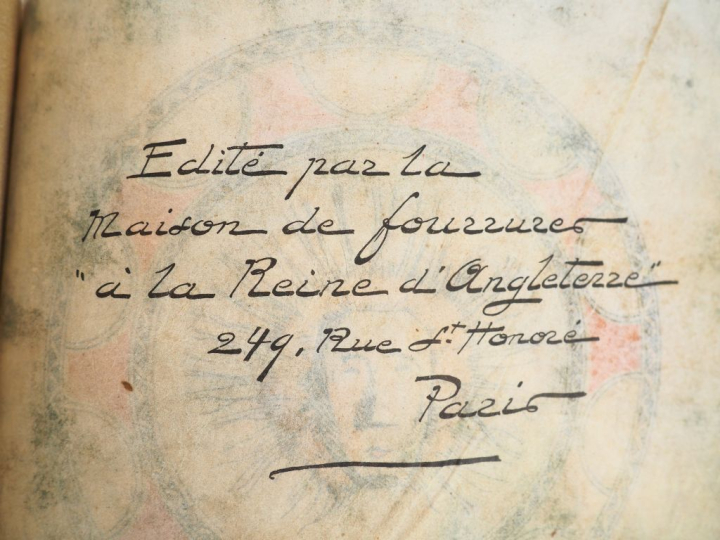 Edité par la
Maison de fourrures
"à la Reine d'Angleterre"
249, Rue St Honoré
Paris